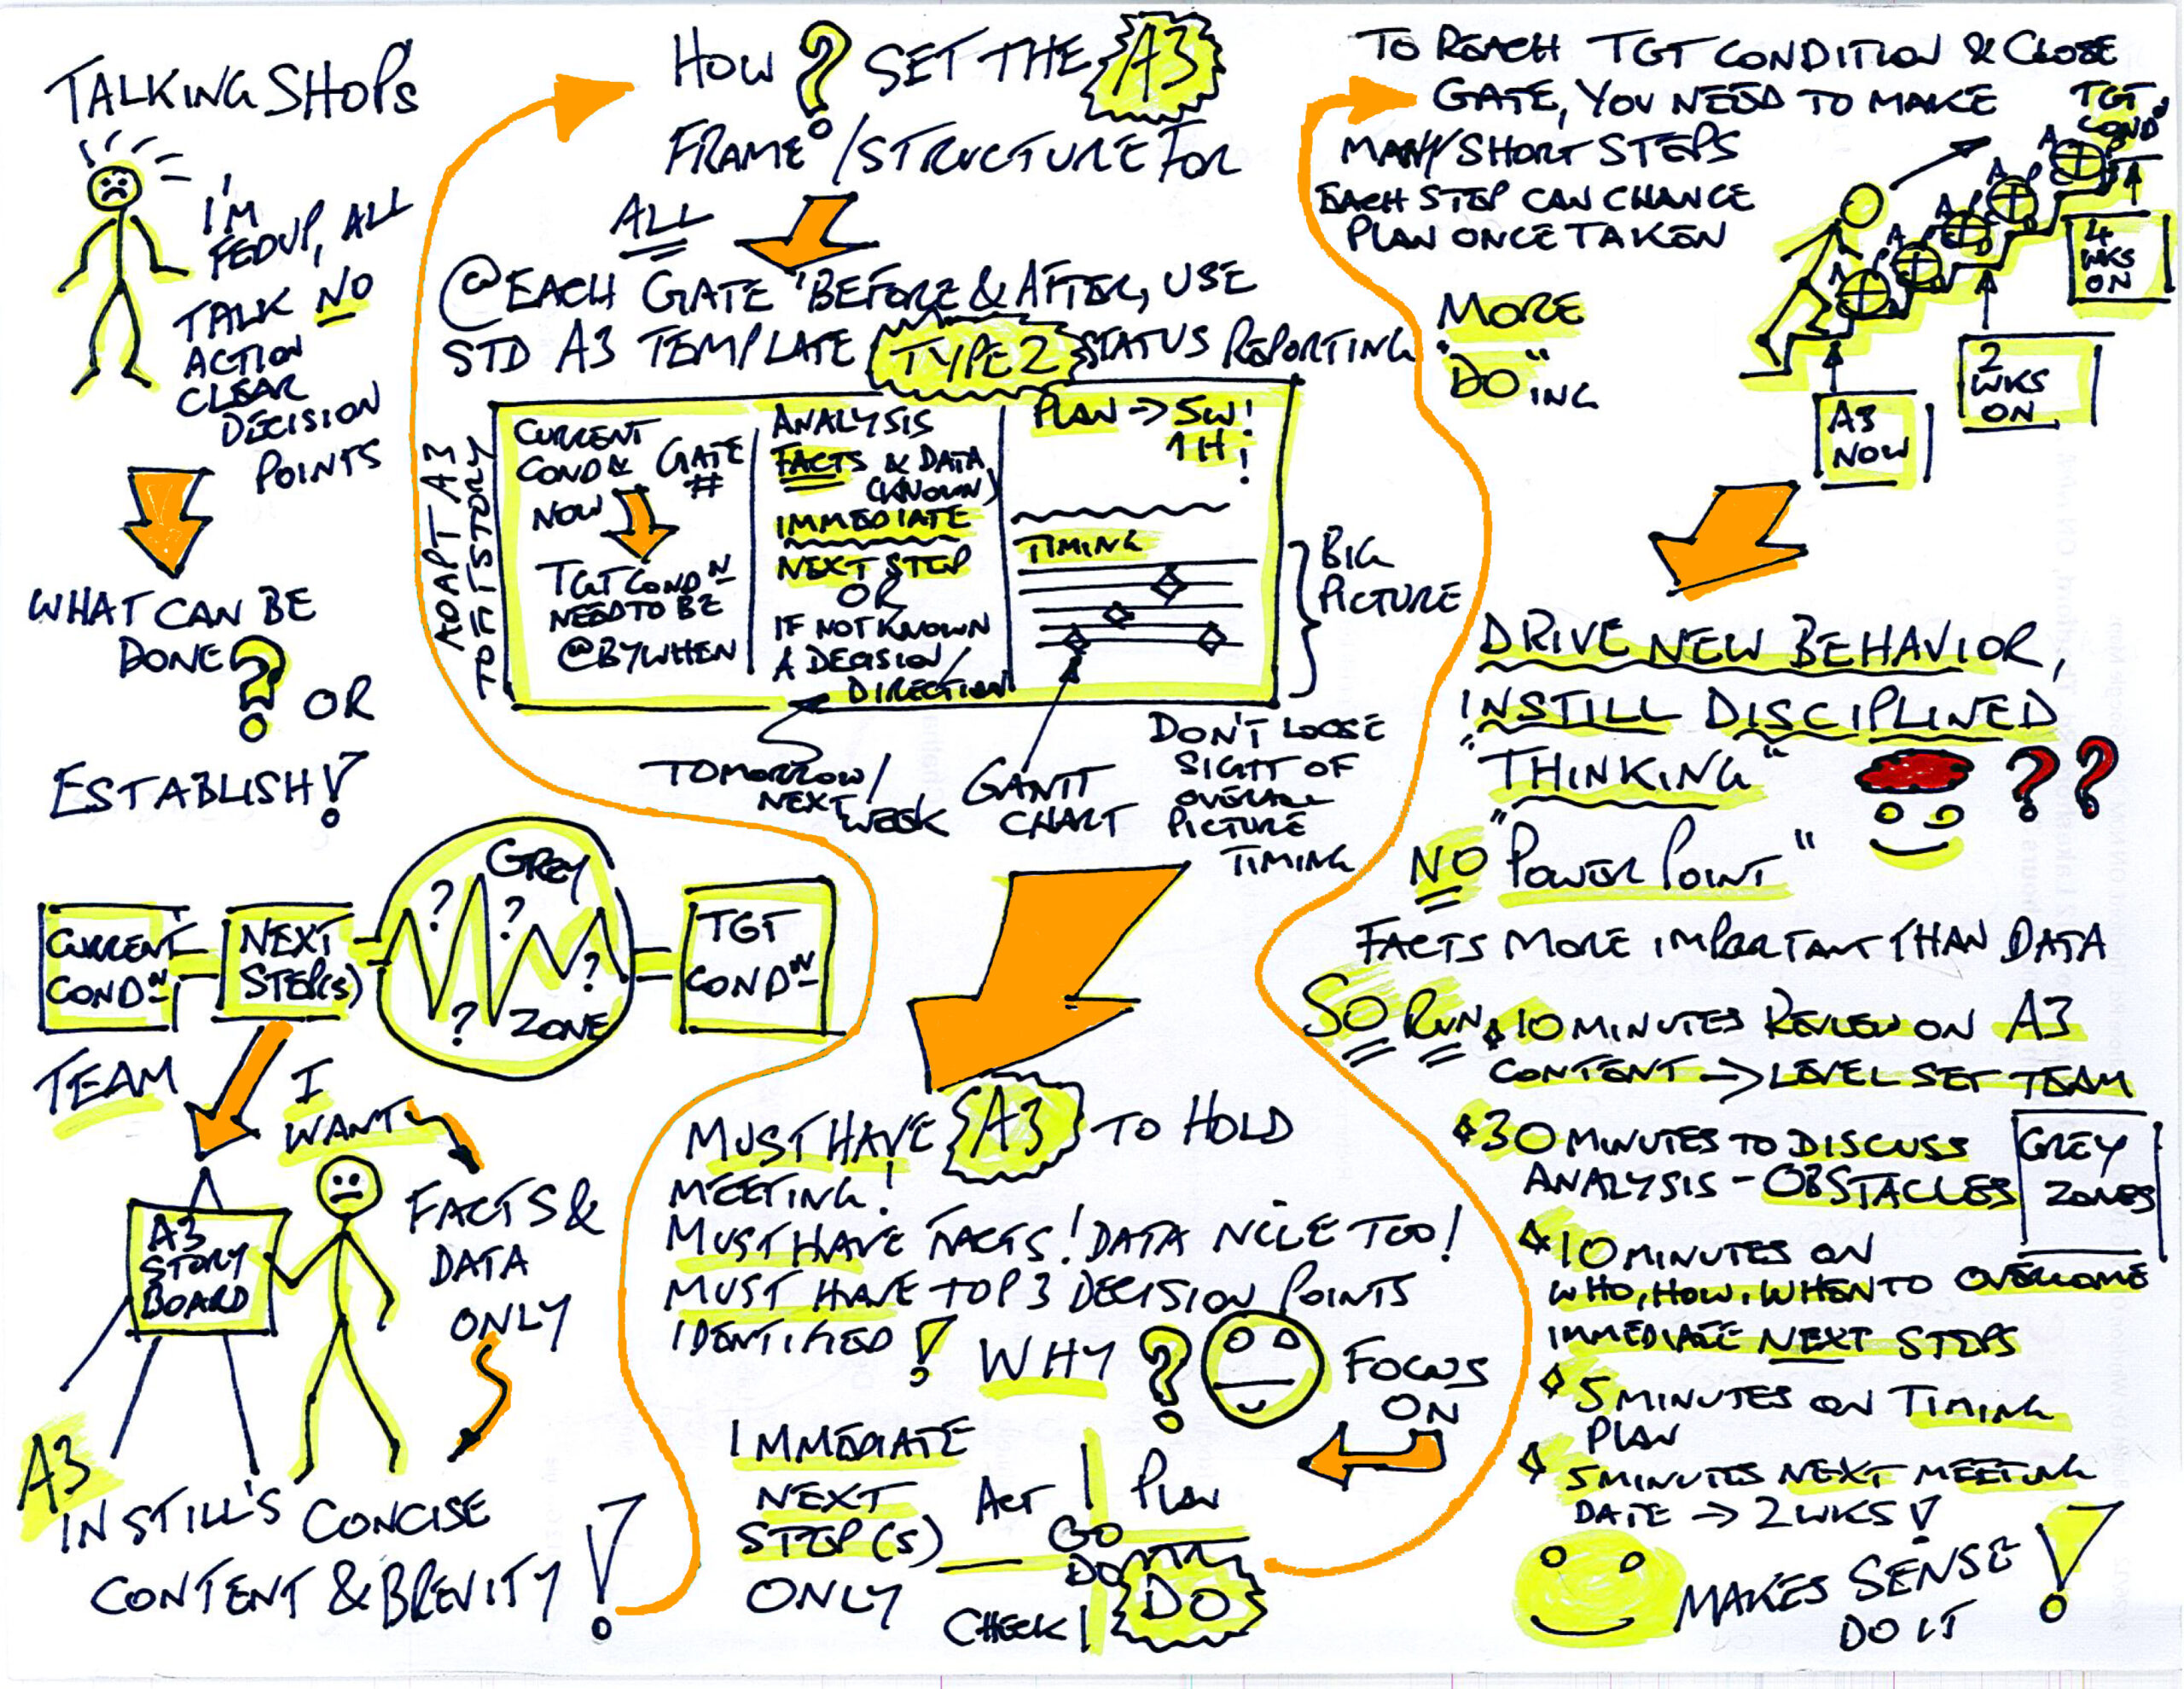 TALKING SHOPS
I'M
FEDUP, ALL
TALK NO
ACTION
CLEAR
DECISION
POINTS
WHAT CAN BE
DONE?
OR
ESTABLISH!
CURRENT
COND N
NEXT
STEP(S)
GREY
? ? ? ?
ZONE
TGT
COND N
TEAM
I
WANT
FACTS &
DATA
ONLY
A3
STORY
BOARD
A3
INSTILL'S CONCISE
CONTENT & BREVITY !
HOW ? SET THE A3
FRAME / STRUCTURE FOR
ALL
@ EACH GATE "BEFORE & AFTER, USE
STD A3 TEMPLATE TYPE 2 STATUS REPORTING
ADAPT A3
TO FIT STORY
CURRENT
COND N GATE
NOW #
TGT COND N
NEED TO BE
@ BY WHEN
ANALYSIS
FACTS & DATA
(KNOWN)
IMMEDIATE
NEXT STEP
OR
IF NOT KNOWN
A DECISION/
DIRECTION
PLAN → 5W!
1H!
TIMING
BIG
PICTURE
TOMORROW/
NEXT WEEK
GANTT
CHART
DON'T LOOSE
SIGHT OF
OVERALL
PICTURE
TIMING
MUST HAVE A3 TO HOLD
MEETING!
MUST HAVE FACTS! DATA NICE TOO!
MUST HAVE TOP 3 DECISION POINTS
IDENTIFIED!
WHY ?
FOCUS
ON
IMMEDIATE
NEXT
STEP(S)
ONLY
ACT PLAN
GO
DO
CHECK DO
TO REACH TGT CONDITION & CLOSE
GATE, YOU NEED TO MAKE
MANY SHORT STEPS
EACH STEP CAN CHANGE
PLAN ONCE TAKEN
MORE
"DO"ING
TGT
COND
4
WKS
ON
2
WKS
ON
A3
NOW
DRIVE NEW BEHAVIOR,
INSTILL DISCIPLINED
"THINKING" ??
NO "POWER POINT"
FACTS MORE IMPORTANT THAN DATA
SO RUN 10 MINUTES REVIEW ON A3
CONTENT → LEVEL SET TEAM
30 MINUTES TO DISCUSS
ANALYSIS - OBSTACLES
GREY
ZONES
10 MINUTES ON
WHO, HOW, WHEN TO OVERCOME
IMMEDIATE NEXT STEPS
5 MINUTES ON TIMING
PLAN
5 MINUTES NEXT MEETING
DATE → 2 WKS!
MAKES SENSE
DO IT !